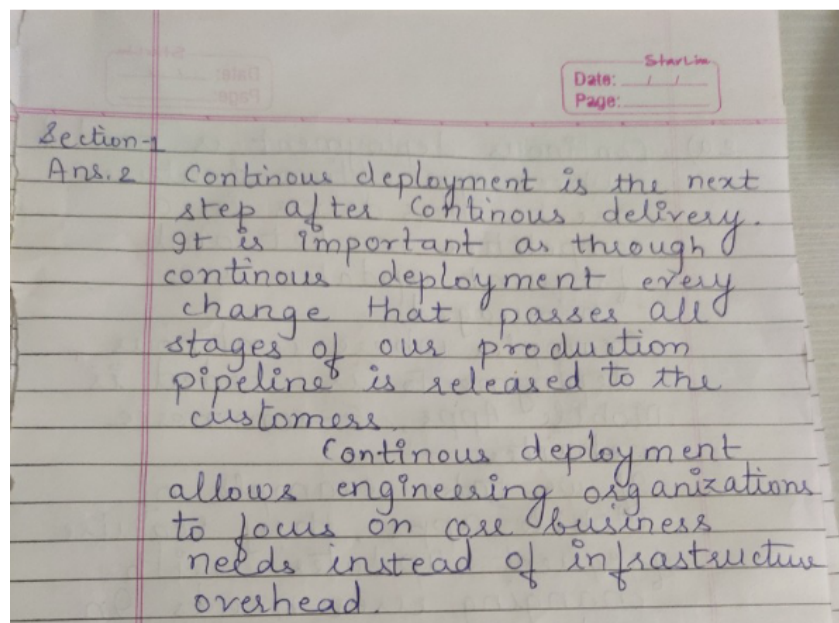 StarLine
Date: / /
Page:
Section-1
Ans.2 Continous deployment is the next
step after Continous delivery.
It is important as through
continous deployment every
change that passes all
stages of our production
pipeline is released to the
customers.
Continous deployment
allows engineering organizations
to focus on core business
needs instead of infrastructure
overhead.